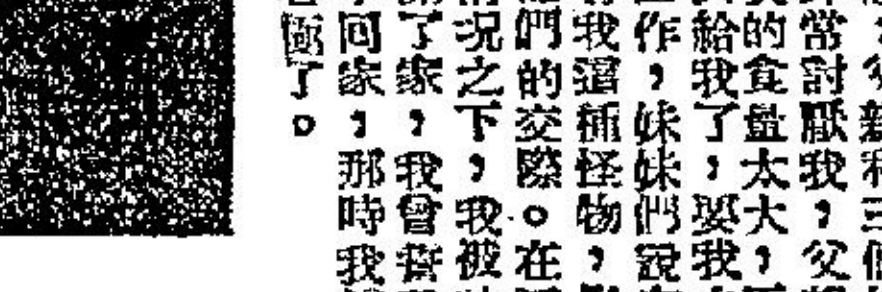 常討厭我,父
的食量太大,
給我了,要我
作,妹妹們說
我這種怪物,
們的交際。在
況之下,我被
了家,我曾誓
囘家,那時我
極了。